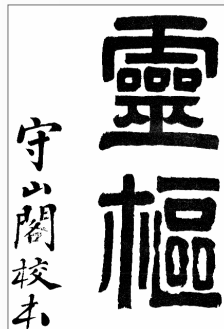 靈樞
守山閣校本